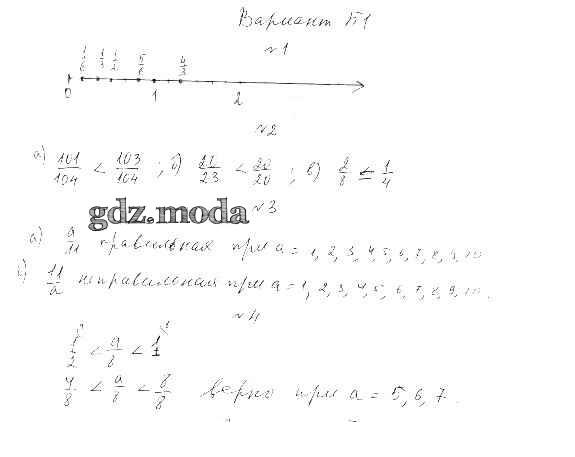 Вариант Б1
№1
1/6 1/3 1/2 5/6 4/3
0 1 2
№2
а) 101/104 < 103/104 ; б) 21/23 < 20/20 ; в) 2/8 = 1/4
gdz.moda
№3
а) a/11 правильная при a = 1, 2, 3, 4, 5, 6, 7, 8, 9, 10
б) 11/a неправильная при a = 1, 2, 3, 4, 5, 6, 7, 8, 9, 10.
№4
1/2 < a/8 < 1
4/8 < a/8 < 8/8 верно при a = 5, 6, 7.